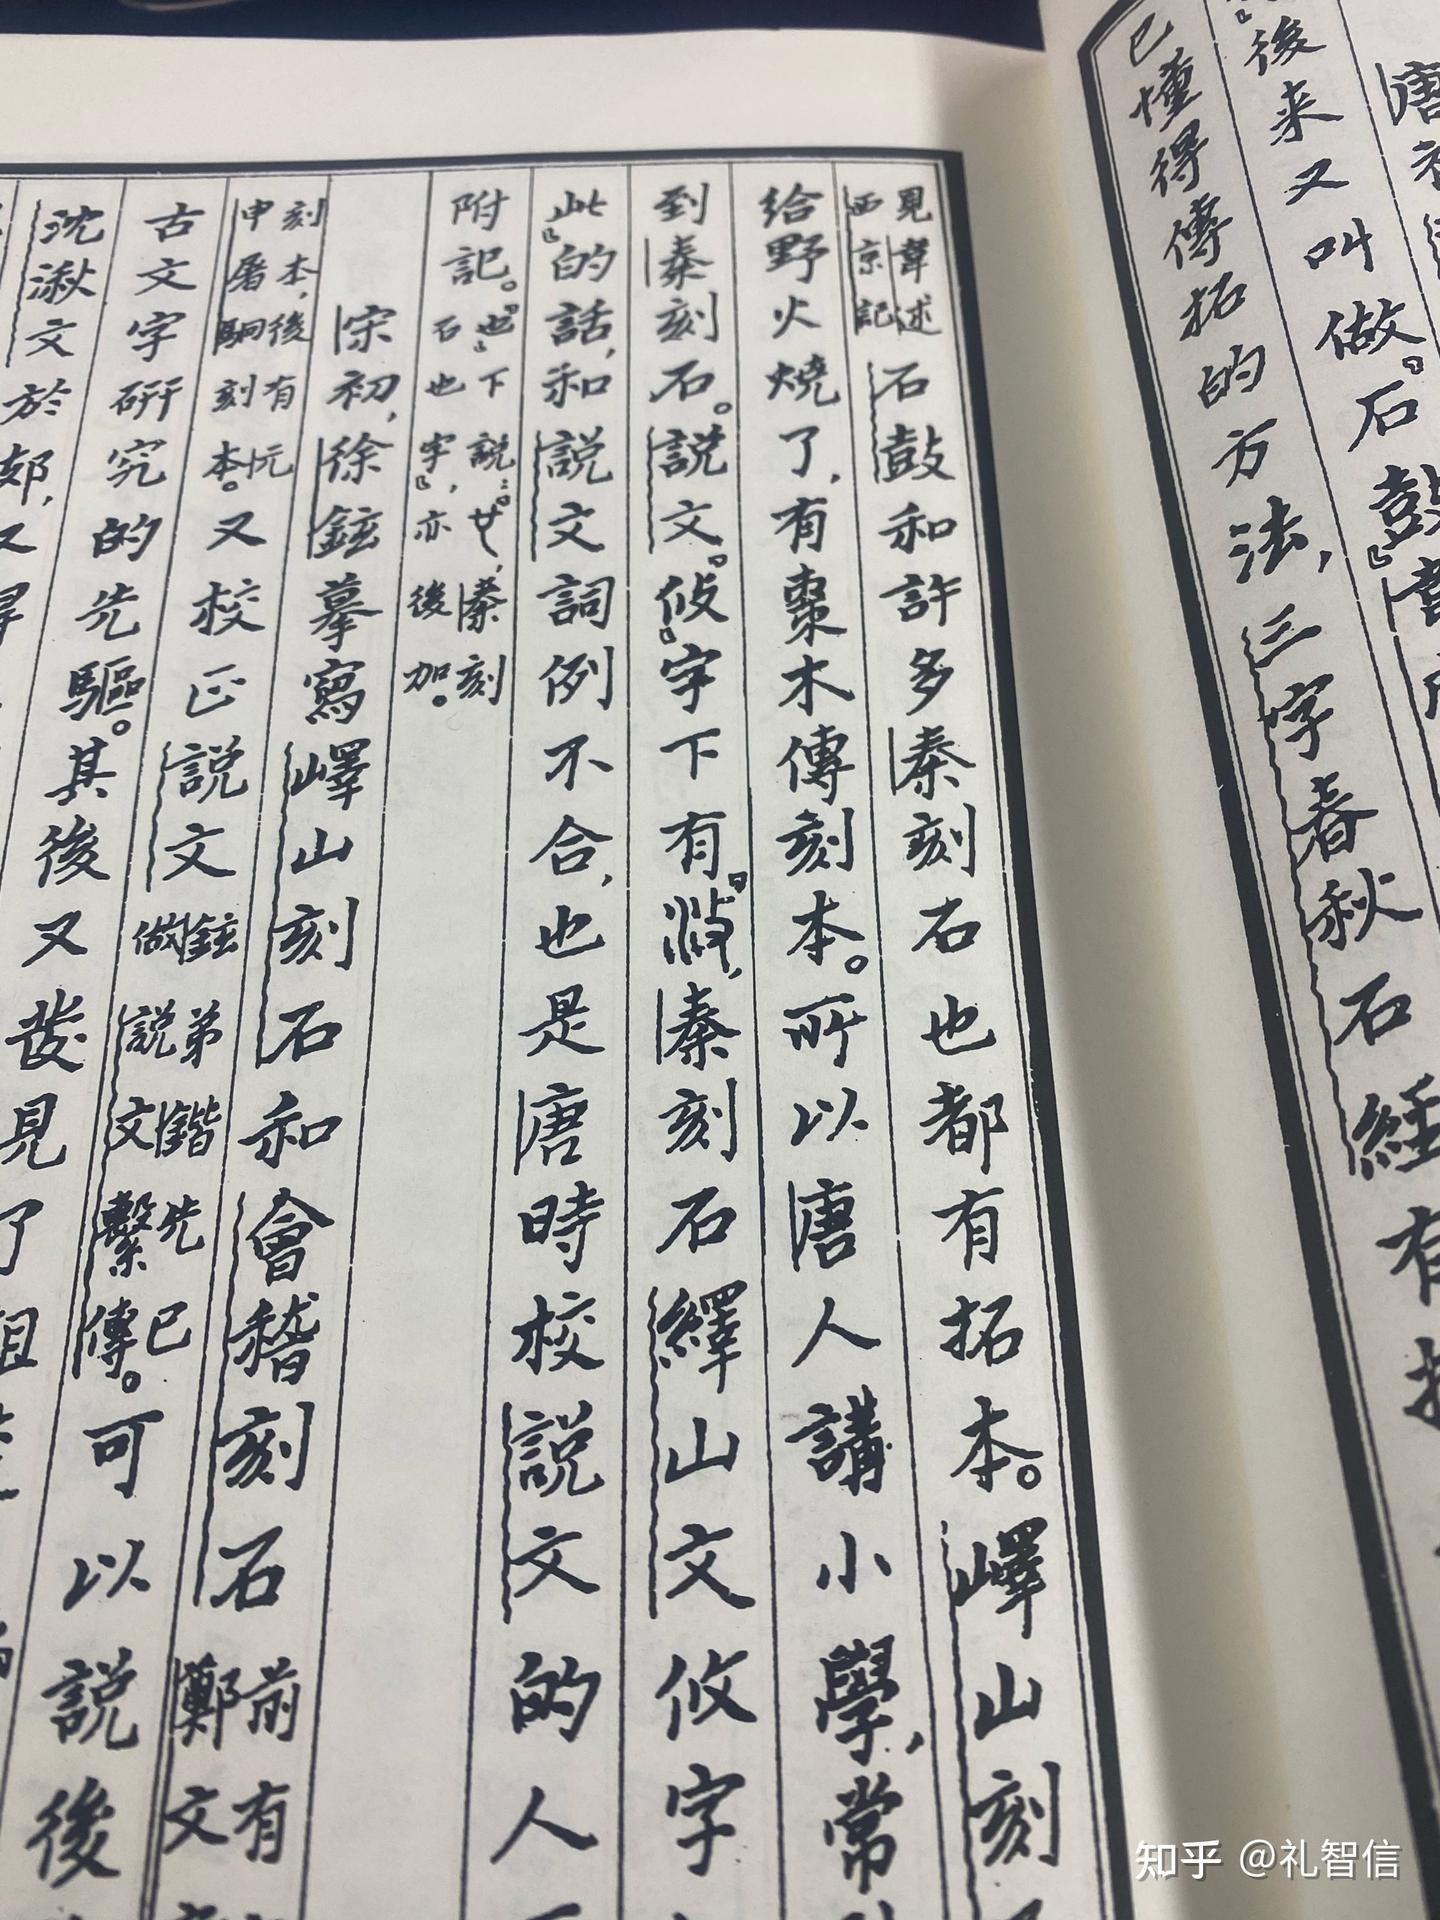 唐
後来又叫做『石鼓』
已懂得傳拓的方法，三字春秋石經有
見韋述西京記石鼓和許多秦刻石也都有拓本。嶧山刻
給野火燒了，有棗木傳刻本。所以唐人講小學，常
到秦刻石。説文『攸』字下有『浟，秦刻石繹山文攸字
此』的話，和説文詞例不合，也是唐時校説文的人
附記。『也』下説：『廿，秦刻石也字』，亦後加。
宋初，徐鉉摹寫嶧山刻石和會稽刻石前有鄭文
刻本，後有阮刻本。申屠駉刻又校正説文鉉弟鍇先已做説文繫傳。可以説後
古文字研究的先驅。其後又發見了
沈湫文於郊，又
知乎 @礼智信